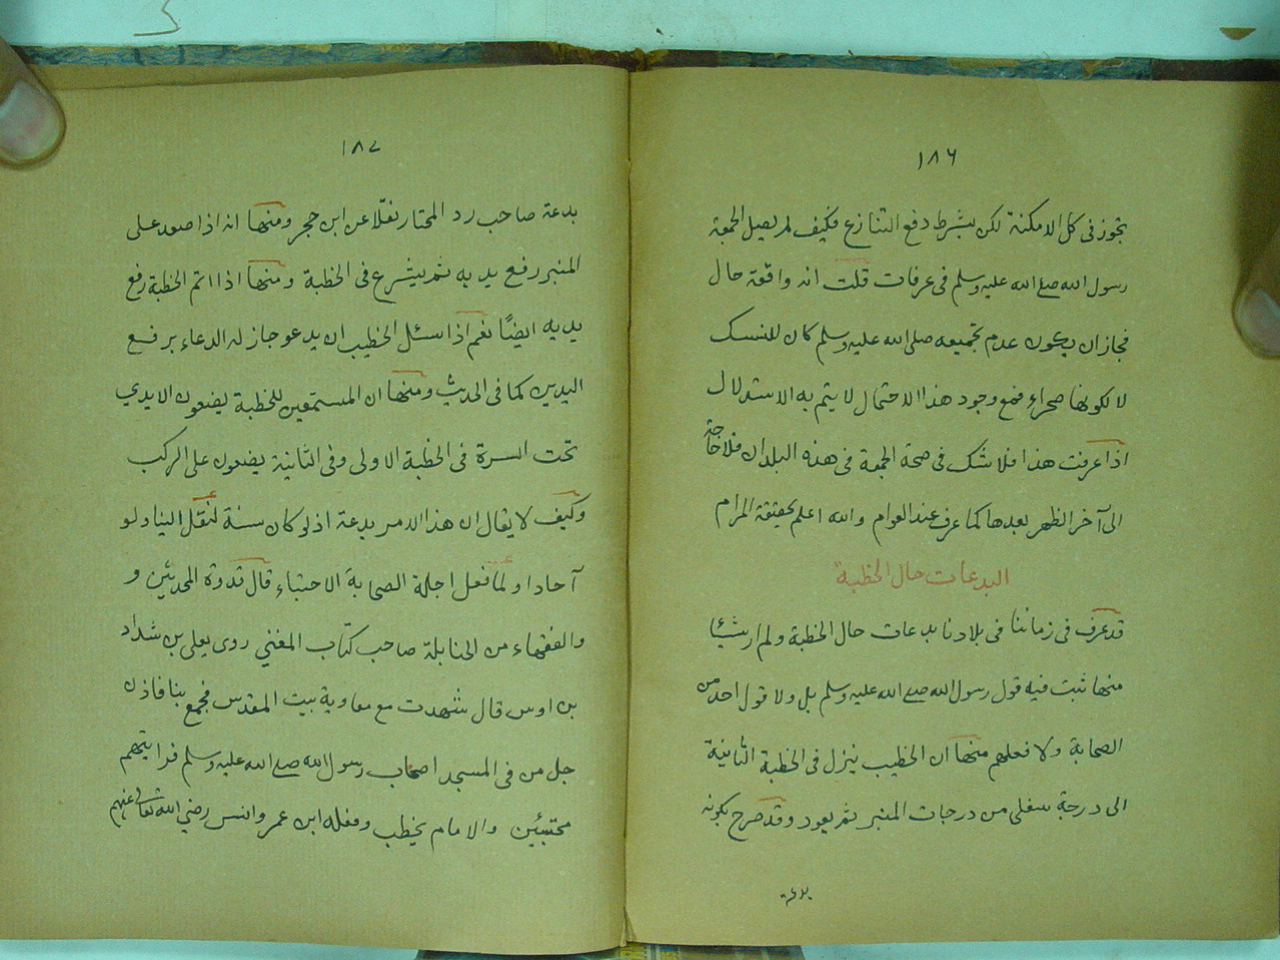 ١٨٦
تجوز فى كل الامكنة لكن بشرط دفع التنازع فكيف لم يصل الجمعة
رسول الله صلے الله عليه وسلم فى عرفات قلت انه واقعة حال
فجاز ان يكون عدم تجميعه صلى الله عليه وسلم كان للنسك
لا لكونها صحراء فمع وجود هذا الاحتمال لا يتم به الاستدلال
اذا عرفت هذا فلا شك فى صحة الجمعة فى هذه البلدان فلا حاجة
الى آخر الظهر بعدها كما عرف عند العوام والله اعلم بحقيقة المرام
البدعات حال الخطبة
قد عرف فى زماننا فى بلادنا بدعات حال الخطبة ولم ار شيئا
منها ثبت فيه قول رسول الله صلے الله عليه وسلم بل ولا قول احد من
الصحابة ولا فعلهم منها ان الخطيب ينزل فى الخطبة الثانية
الى درجة سفلى من درجات المنبر ثم يعود وقد صرح بكونه
بدعة
١٨٧
بدعة صاحب رد المحتار نقلا عن ابن حجر ومنها انه اذا صعد على
المنبر رفع يديه ثم يشرع فى الخطبة ومنها اذا اتم الخطبة رفع
يديه ايضًا نعم اذا سئل الخطيب ان يدعو جاز له الدعاء برفع
اليدين كما فى الحديث ومنها ان المستمعين للخطبة يضعون الايدي
تحت السرة فى الخطبة الاولى وفى الثانية يضعون على الركب
وكيف لا يقال ان هذا الامر بدعة اذ لو كان سنة لنقل الينا ولو
آحادا ولما فعل اجلة الصحابة الاحتباء قال قدوة المحدثين و
والفقهاء من الحنابلة صاحب كتاب المغني روى يعلى بن شداد
بن اوس قال شهدت مع معاوية بيت المقدس فجمع بنا فاذن
جل من فى المسجد اصحاب رسول الله صلے الله عليه وسلم فرايتهم
محتبئين والامام يخطب وفعله ابن عمر وانس رضي الله تعالى عنهم